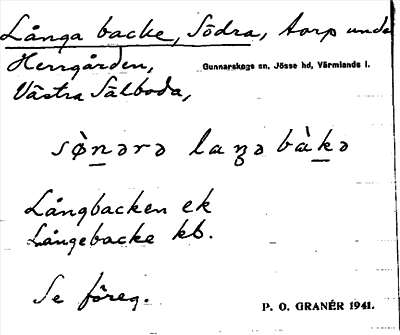 Långa backe, Södra, torp under
Herrgården,
Gunnarskogs sn, Jösse hd, Värmlands l.
Västra Sälboda,
sø̀nərə laŋə bàkə
Långbacken ek
Långebacke kb.
Se föreg.
P. O. GRANÉR 1941.